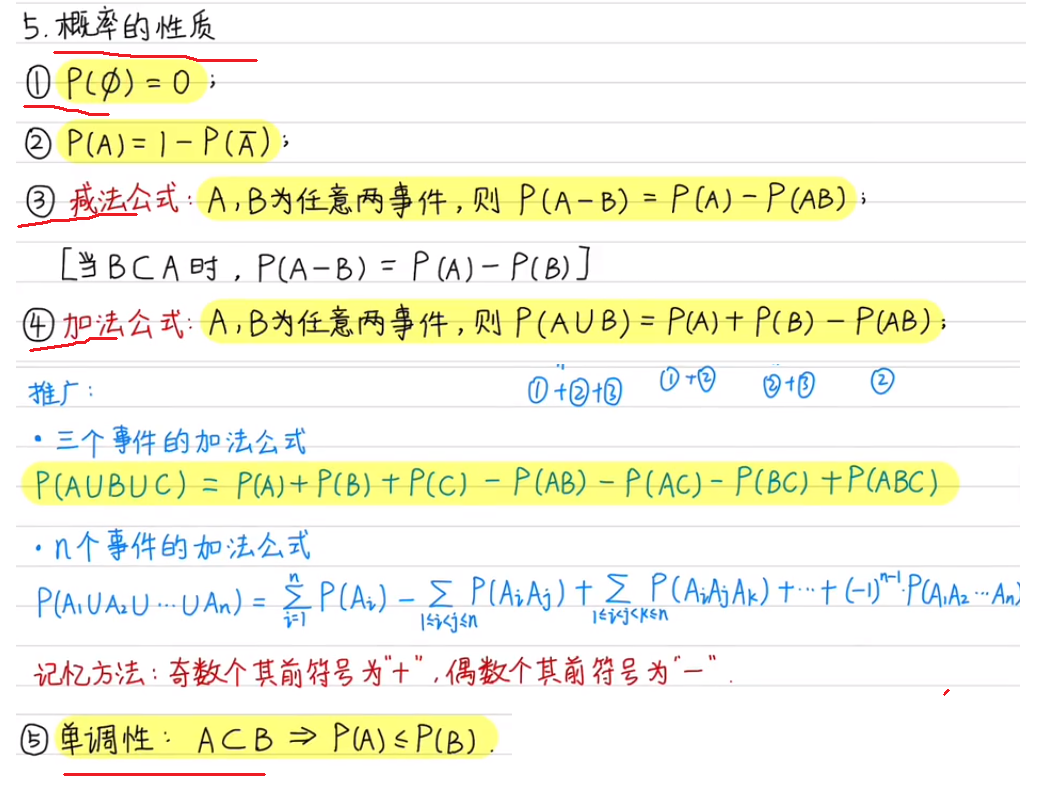 5. 概率的性质
① P(∅) = 0 ;
② P(A) = 1 - P(A̅) ;
③ 减法公式: A,B为任意两事件,则 P(A-B) = P(A) - P(AB) ;
[当B⊂A时, P(A-B) = P(A) - P(B)]
④ 加法公式: A,B为任意两事件,则 P(A∪B) = P(A) + P(B) - P(AB) ;
推广: ①+②+③ ①+② ②+③ ②
· 三个事件的加法公式
P(A∪B∪C) = P(A) + P(B) + P(C) - P(AB) - P(AC) - P(BC) + P(ABC)
· n个事件的加法公式
P(A₁∪A₂∪⋯∪Aₙ) = ∑_{i=1}^{n} P(Aᵢ) - ∑_{1≤i<j≤n} P(AᵢAⱼ) + ∑_{1≤i<j<k≤n} P(AᵢAⱼAₖ) + ⋯ + (-1)ⁿ⁻¹·P(A₁A₂⋯Aₙ)
记忆方法: 奇数个其前符号为"+",偶数个其前符号为"-".
⑤ 单调性: A⊂B ⇒ P(A) ≤ P(B).